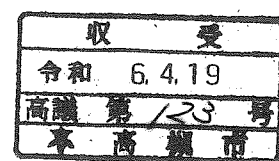 収受
令和 6.4.19
高議 第 123 号
★ 高槻市